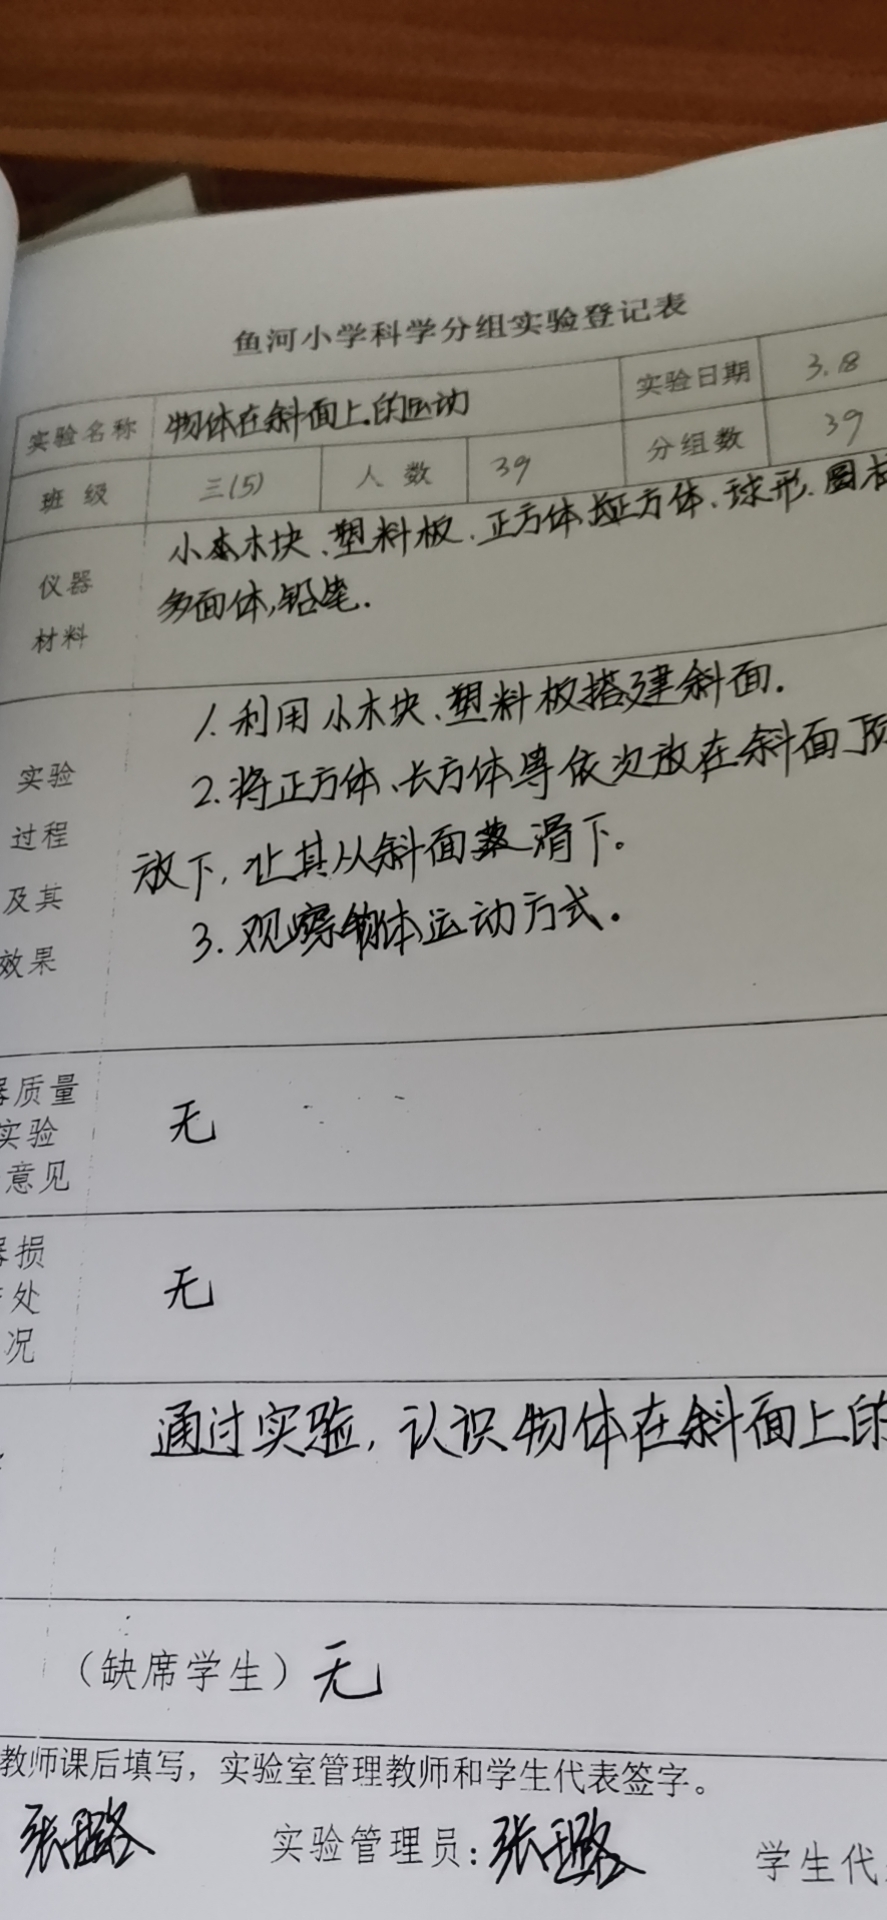 鱼河小学科学分组实验登记表
实验名称 物体在斜面上的运动 实验日期 3.8
班级 三(5) 人数 39 分组数 39
仪器材料 小木块、塑料板、正方体、正方体、球形、圆
多面体,铅笔.
实验过程及其效果 1.利用小木块、塑料板搭建斜面.
2.将正方体、长方体等依次放在斜面顶
放下,让其从斜面滑下。
3.观察物体运动方式.
质量
实验
意见 无
损
处
况 无
通过实验,认识物体在斜面上的
(缺席学生)无
教师课后填写,实验室管理教师和学生代表签字。
张璐 实验管理员:张璐 学生代